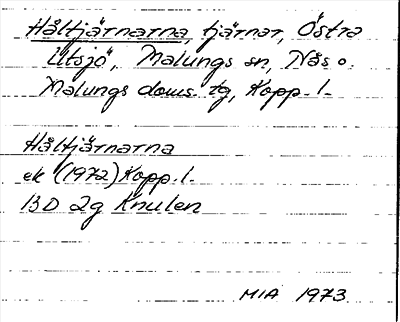 Håltjärnarna, tjärnar, Östra
Utsjö, Malungs sn, Nås o.
Malungs doms. tg, Kopp. l.
Håltjärnarna
ek (1972) Kopp. l.
13D 2g Knulen
MIA 1973